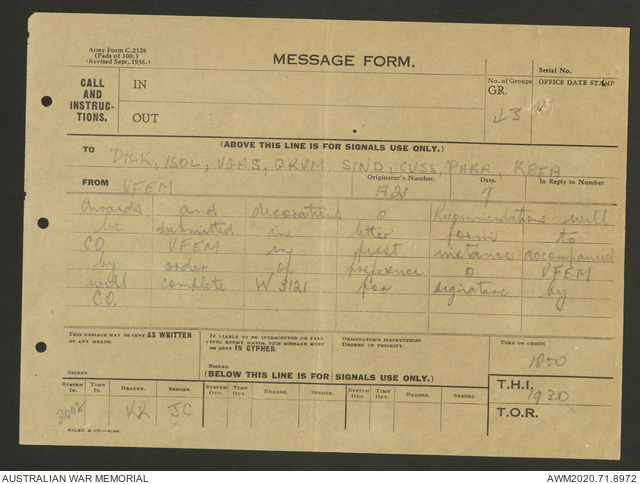 Army Form C.2128
(Pads of 100.)
(Revised Sept, 1936.)
MESSAGE FORM.
Serial No.
CALL AND INSTRUC-TIONS.
IN
OUT
No. of Groups
GR.
43
OFFICE DATE STAMP
(ABOVE THIS LINE IS FOR SIGNALS USE ONLY.)
TO DILK, ISOL, VGAS, GRVM, SIND, CUSS, PHKA, KEFA
FROM VFEM
Originator's Number. A21
Date. 7
In Reply to Number
Awards and decorations o Recommendations will
be submitted in letter form to
CO VFEM in first instance accompanied
by order of preference o VFEM
will complete W 3121 for signature by
CO.
THIS MESSAGE MAY BE SENT AS WRITTEN BY ANY MEANS.
SIGNED
IF LIABLE TO BE INTERCEPTED OR FALL INTO ENEMY HANDS, THIS MESSAGE MUST BE SENT IN CYPHER.
SIGNED
ORIGINATOR'S INSTRUCTIONS
DEGREE OF PRIORITY.
TIME OF ORIGIN
1850
(BELOW THIS LINE IS FOR SIGNALS USE ONLY.)
T.H.I. 1930
T.O.R.
SYSTEM IN. TIME IN. READER. SENDER. SYSTEM OUT. TIME OUT. READER. SENDER. SYSTEM OUT. TIME OUT. READER. SENDER. SYSTEM OUT. TIME OUT. READER. SENDER.
2002 KR JC
AUSTRALIAN WAR MEMORIAL
AWM2020.71.8972